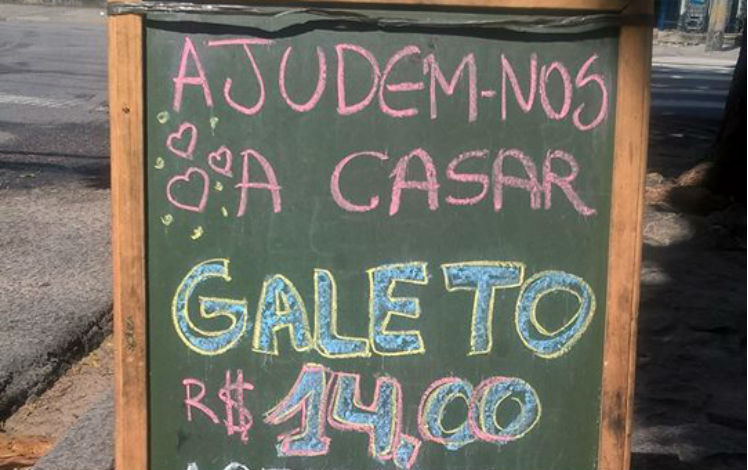 AJUDEM-NOS
A CASAR
GALETO
R$ 14,00